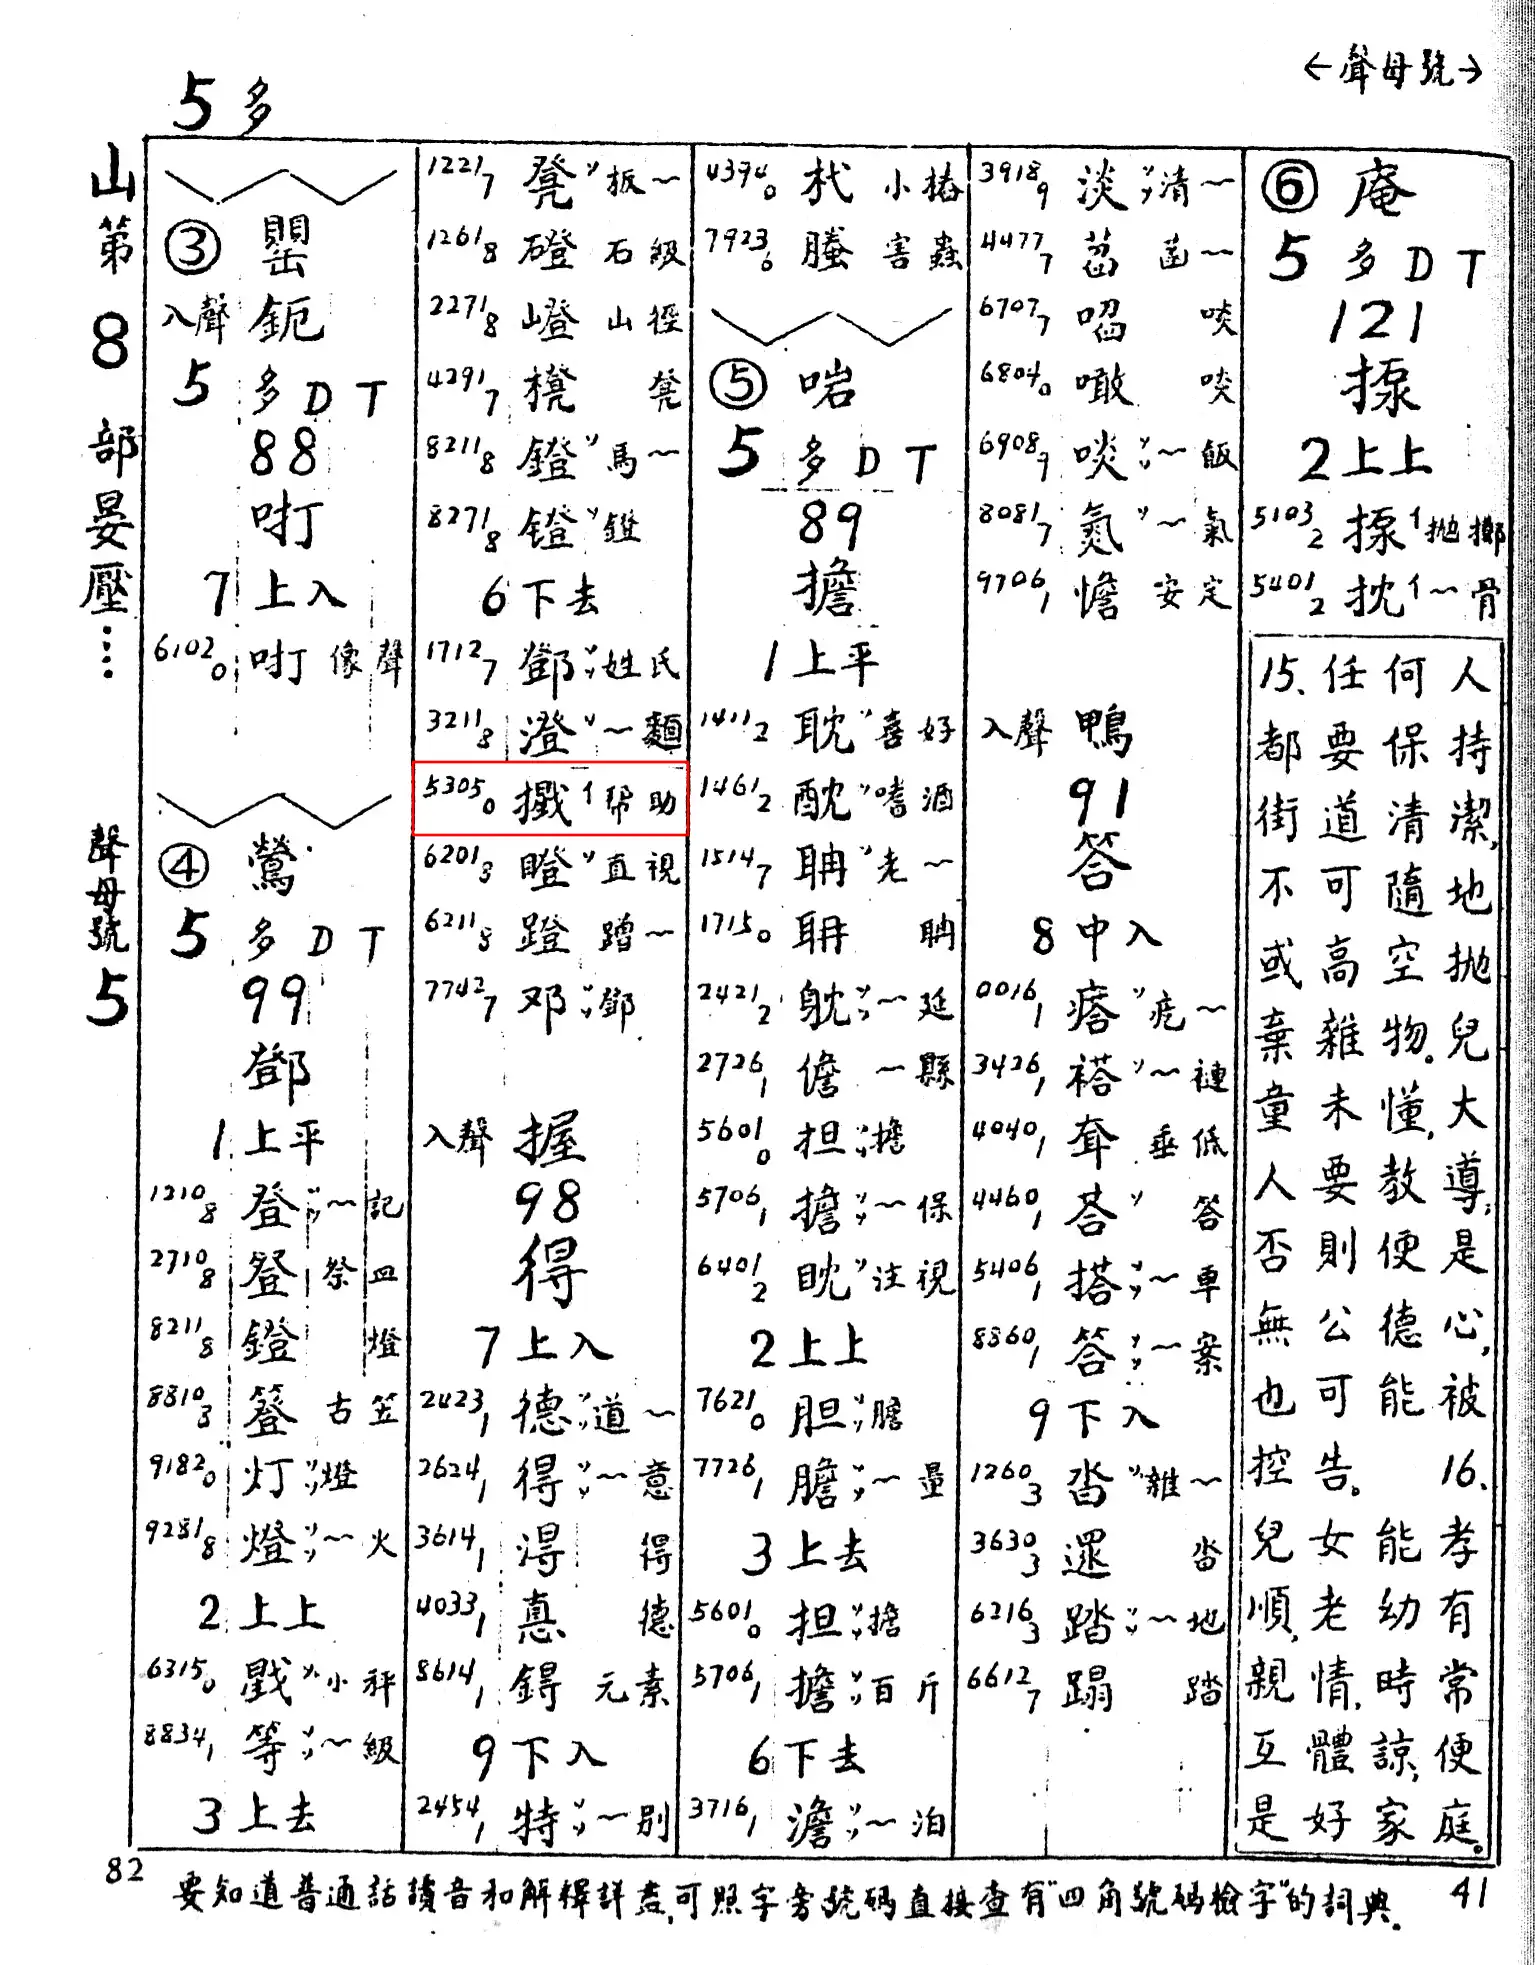 ←聲母號→
5 多
山第 8 部晏壓⋯⋯ 聲母號 5
③ 罌
入聲 鈪
5 多 D T
88
咑
7 上入
6102₀ 咑 像聲
④ 鶯
5 多 D T
99
鄧
1 上平
1210₈ 登 〃〃~記
2710₈ 祭皿
8211₈ 鐙 燈
8810₈ 簦 古笠
9182₀ 灯 〃〃燈
9281₈ 燈 〃〃~火
2 上上
6315₀ 戥 〃小秤
8834₁ 等 〃〃~級
3 上去
1221₇ 凳 〃板~
1261₈ 磴 石級
2271₈ 嶝 山徑
4291₇ 櫈 凳
8211₈ 鐙 〃馬~
8271₈ 镫 〃鐙
6 下去
1712₇ 鄧 〃〃姓氏
3211₈ 澄 〃~麵
5305₀ 擑 亻帮助
6201₈ 瞪 〃直視
6211₈ 蹬 蹭~
7742₇ 邓 〃〃鄧
入聲 握
98
得
7 上入
2423₁ 德 〃〃道~
2624₁ 得 〃〃~意
3614₁ 淂 得
4033₁ 悳 德
8614₁ 鍀 元素
9 下入
2454₁ 特 〃〃~别
4394₀ 杙 小樁
7923₆ 螣 害蟲
⑤ 啱
5 多 D T
89
擔
1 上平
1411₂ 耽 〃喜好
1461₂ 酖 〃嗜酒
1514₇ 聃 〃老~
1715₀ 耼 聃
2421₂ 躭 〃〃~延
2726₁ 儋 ~縣
5601₀ 担 〃〃擔
5706₁ 擔 〃〃~保
6401₂ 眈 〃注視
2 上上
7621₀ 胆 〃〃膽
7726₁ 膽 〃〃~量
3 上去
5601₀ 担 〃〃擔
5706₁ 擔 〃〃百斤
6 下去
3716₁ 澹 〃〃~泊
3918₉ 淡 〃〃清~
4477₇ 萏 菡~
6707₇ 啗 啖
6804₀ 噉 啖
6908₉ 啖 〃〃~飯
8081₇ 氮 〃~氣
9706₁ 憺 安定
入聲 鴨
91
答
8 中入
0016₁ 瘩 〃疙~
3426₁ 褡 〃~褳
4040₁ 耷 垂低
4460₁ 荅 〃答
5406₁ 搭 〃〃~車
8860₁ 答 〃〃~案
9 下入
1260₃ 沓 〃雜~
3630₃ 遝 沓
6216₃ 踏 〃〃~地
6612₇ 蹋 踏
⑥ 庵
5 多 D T
121
2 上上
5103₂ 亻抛擲
5401₂ 抌 亻~骨
15、任何人
都要保持
街道清潔,
不可隨地
或高空抛
棄雜物。兒
童未懂,大
人要教導,
否則便是
無公德心,
也可能被
控告。 16、
兒女能孝
順,老幼有
親情,時常
互體諒,便
是好家庭。
82
要知道普通話讀音和解釋詳盡,可照字旁號碼直接查有“四角號碼檢字”的詞典。
41